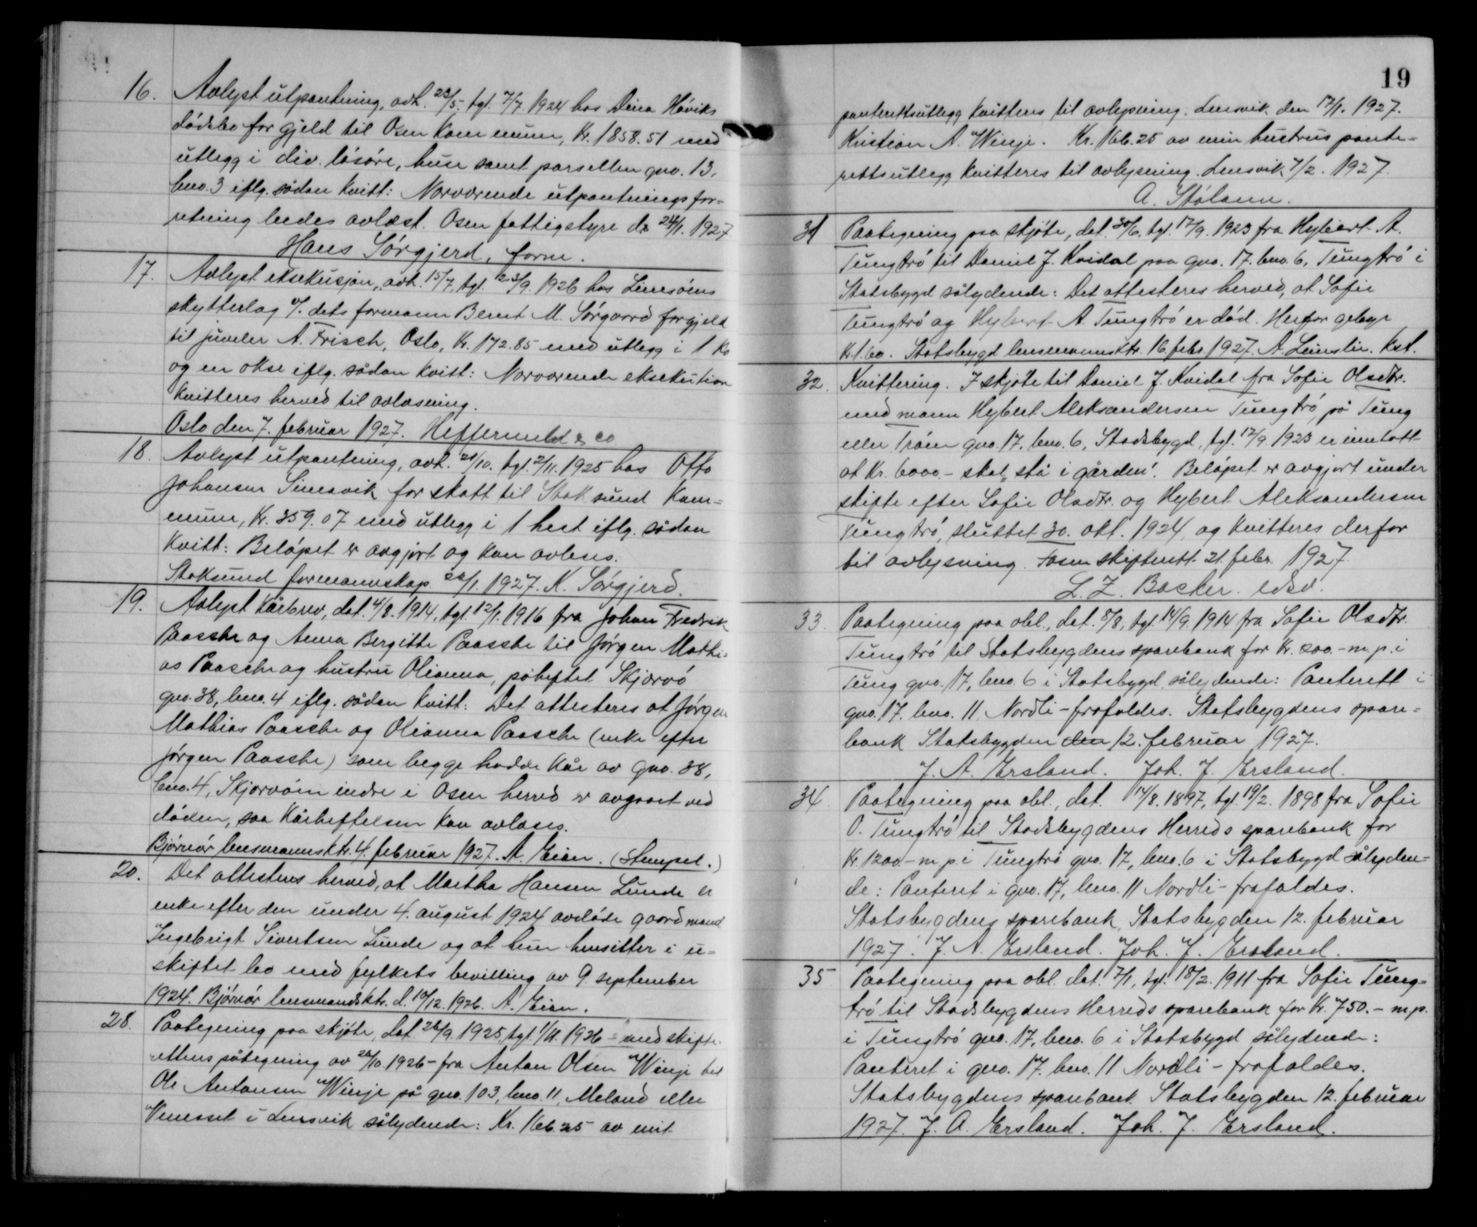 16. Avlyst utpantning, avh. 23/5. tgl. 7/7 1924 hos Deina Høviks
dødsbo for gjeld til Osen kommune, Kr. 1858.51 med
utlegg i div. løsøre, huse samt parsellen gno. 13,
bno. 3 iflg. sådan kvitt: Nærværende utpantningsfor-
retning bedes avlæst. Osen fattigstyre d. 24/1. 1927
Hans Sørgjerd, form.
17. Avlyst eksekusjon, avh. 15/7, tgl. 23/9. 1926 hos
skytterlag v/ dets formann Bernt M. Sørgaard for gjeld
til juveler A. Frisch, Oslo, Kr. 172.85 med utlegg i 1 Ko
og en okse iflg. sådan kvitt: Nærværende eksekution
kvitteres herved til avlæsning.
Oslo den 7. februar 1927. Heffermehl & co
18. Avlyst utpantning, avh. 21/10. tgl. 2/11. 1925 hos Otto
Johansen Simesvik for skatt til Stoksund Kom-
mune, Kr. 359.07 med utlegg i 1 hest iflg. sådan
kvitt: Beløpet er avgjort og kan avleses.
Stoksund formannskap 22/1 1927. K. Sørgjerd.
19. Avlyst kårbrev, dat. 4/8. 1914, tgl. 12/1. 1916 fra Johan Fredrik
Paasche og Anna Bergitte Paasche til Jørgen Mathi-
as Paasche og hustru Olianna, påheftet Skjervø
gno. 38, bno. 4 iflg. sådan kvitt: Det attesteres at Jørgen
Mathias Paasche og Olianna Paasche (enke efter
Jørgen Paasche) som begge hadde kår av gno. 38,
bno. 4, Skjervøin indre i Osen herred er avgaaet ved
døden, saa kårheftelsen kan avlæses.
Bjørnør lensmannsktr. 4. februar 1927. A. Eian. (Stempel.)
20. Det attesteres herved, at Martha Hansen Lunde er
enke efter den under 4. august 1924 avdøde gaardmand
Ingebrigt Sivertsen Lunde og at hun hensitter i u-
skiftet bo med fylkets bevilling av 9 september
1924. Bjørnør lensmandsktr. d. 10/12. 1926. A. Eian.
28. Paategning paa skjøte, dat. 26/9. 1925, tgl. 1/11. 1926 - med skifte-
rettens påtegning av 20/10. 1926 - fra Anton Olsen Winje til
Ole Antonsen Winje på gno. 103, bno. 11, Meland eller
i Lensvik sålydende: Kr. 166.25 av mit
19
panterettsutlegg kvitteres til avlysning. Lensvik den 17/1. 1927.
Kristian A. Winje. Kr. 166.25 av min hustrus pante-
rettsutlegg kvitteres til avlysning. Lensvik 7/2. 1927.
A. Stølann.
31 Paategning paa skjøte, dat. 30/6, tgl. 12/9. 1923 fra Hybert A.
Tungtrø til Daniel J. Kvidal paa gno. 17. bno. 6, Tungtrø i
Stadsbygd sålydende: Det attesteres herved, at Sofie
Tungtrø og Hybert A. Tungtrø er død. Herfor gebyr
Kr. 1.60. Stadsbygd lensmannsktr. 16. febr. 1927. A. Leinslie. kst.
32. Kvittering. I skjøte til Daniel J. Kvidal fra Sofie Olsdtr.
med mann Hybert Aleksandersen Tungtrø, på Tung
eller Trøen gno. 17. bno. 6, Stadsbygd, tgl. 12/9 1923 er inntatt
at Kr. 6000.- skal "stå i gården". Beløpet er avgjort under
skifte efter Sofie Olsdtr. og Hybert Aleksandersen
Tungtrø, sluttet 30. okt. 1924, og kvitteres derfor
til avlysning. Fosen skifterett 21. febr. 1927.
L. Z. Backer. edsv.
33. Paategning paa obl., dat. 5/8, tgl. 14/9. 1914 fra Sofie Olsdtr.
Tungtrø til Stadsbygdens sparebank for Kr. 200.- m.p. i
Tung gno. 17, bno. 6 i Stadsbygd, sålydende: Panterett i
gno. 17. bno. 11 Nordli - frafaldes. Stadsbygdens spare-
bank Stadsbygden den 12. februar 1927.
J. A. Ersland. Joh. J. Ersland.
34. Paategning paa obl., dat. 14/8. 1897, tgl. 19/2. 1898 fra Sofie
O. Tungtrø til Stadsbygdens Herreds sparebank for
Kr. 1200.- m.p. i Tungtrø gno. 17, bno. 6 i Stadsbygd sålyden-
de: Panteret i gno. 17, bno. 11 Nordli - frafaldes.
Stadsbygdens sparebank, Stadsbygden 12. februar
1927. J. A. Ersland. Joh. J. Ersland.
35 Paategning paa obl. dat. 7/1, tgl. 18/2. 1911 fra Sofie Tung-
trø til Stadsbygdens Herreds sparebank for Kr. 750.- m.p.
i Tungtrø gno. 17, bno. 6 i Stadsbygd sålydende:
Panteret i gno. 17. bno. 11 Nordli - frafaldes.
Stadsbygdens sparebank Stadsbygden 12. februar
1927. J. A. Ersland. Joh. J. Ersland.